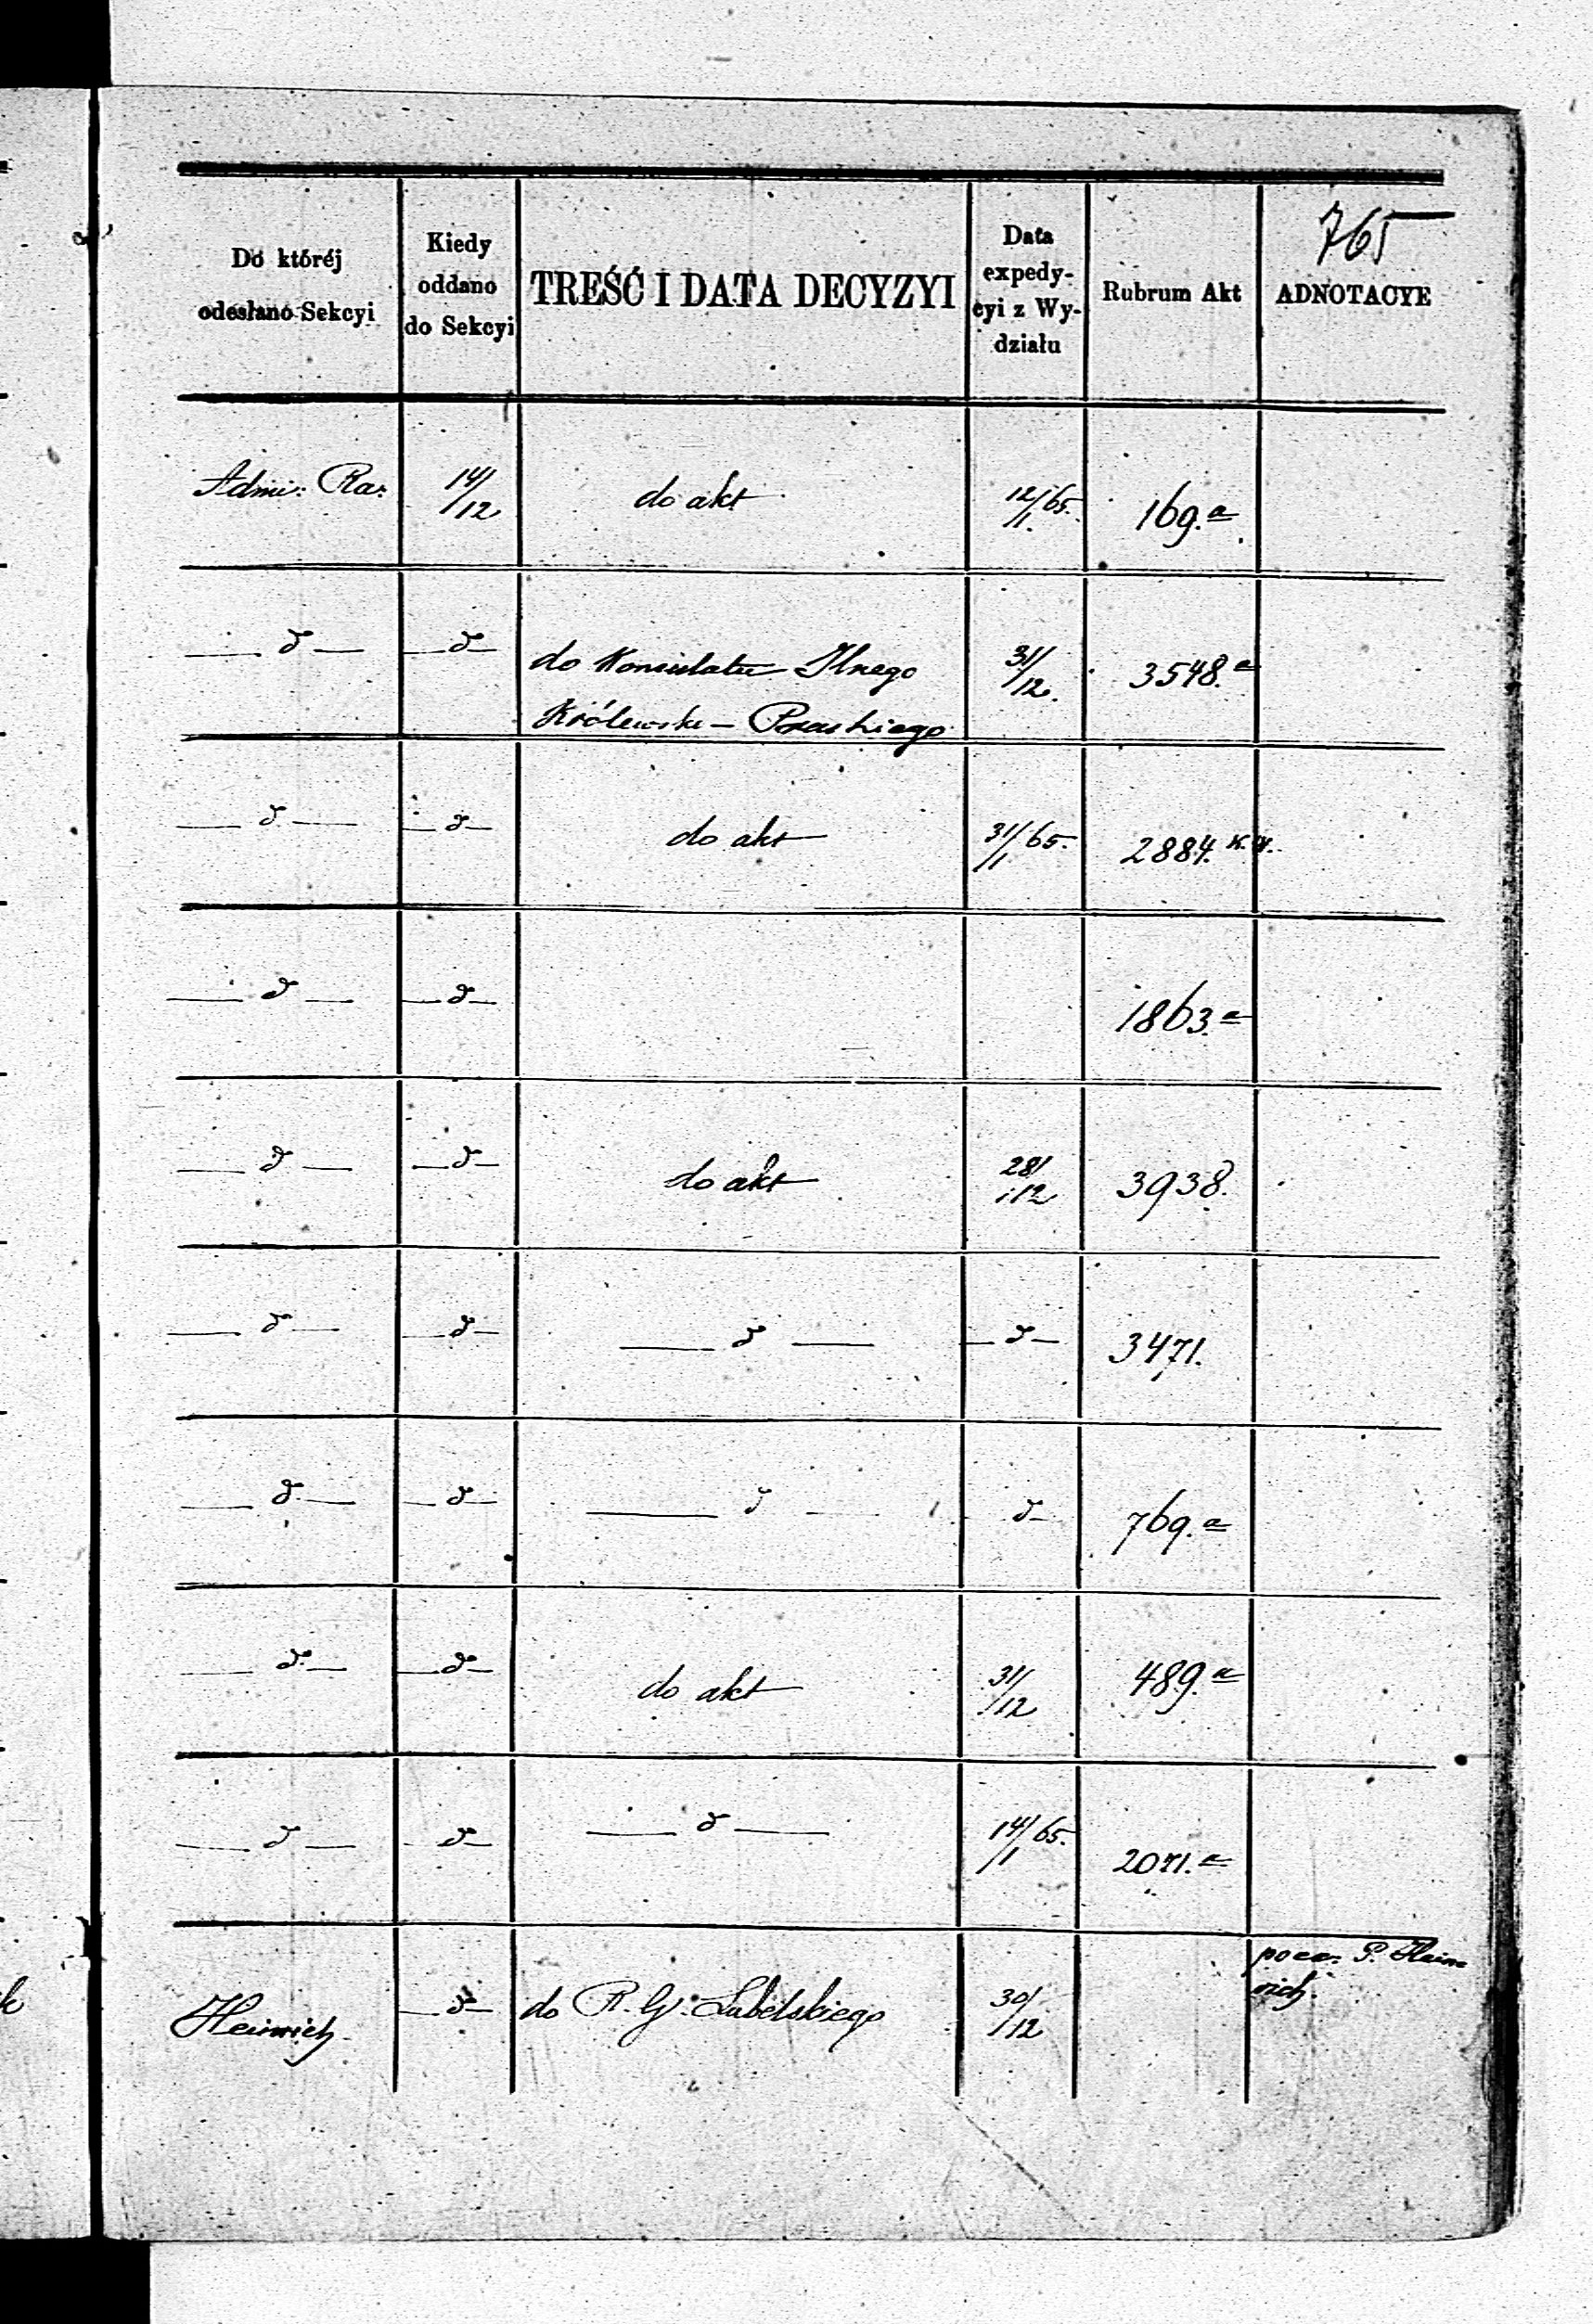 765
Do któréj odesłano Sekcyi | Kiedy oddano do Sekcyi | TREŚĆ I DATA DECYZYI | Data expedycyi z Wydziału | Rubrum Akt | ADNOTACYE
Admi: Ra: | 14/12 | do akt | 12/1 65. | 169.a
— d — | — d — | do Konsulatu Jlnego Królewsko – Pruskiego | 31/12. | 3548.a
— d — | — d — | do akt | 31/1 65. | 2884.
— d — | — d — | 1863.a
— d — | — d — | do akt | 28/12 | 3938.
— d — | — d — | — d — | — d — | 3471.
— d — | — d — | — d — | d — | 769.a
— d — | — d — | do akt | 31/12 | 489.a
— d — | — d — | — d — | 14/1 65. | 2071.a
Heinrich | — d — | do R. G. Lubelskiego | 30/12 | P. Heinrich.